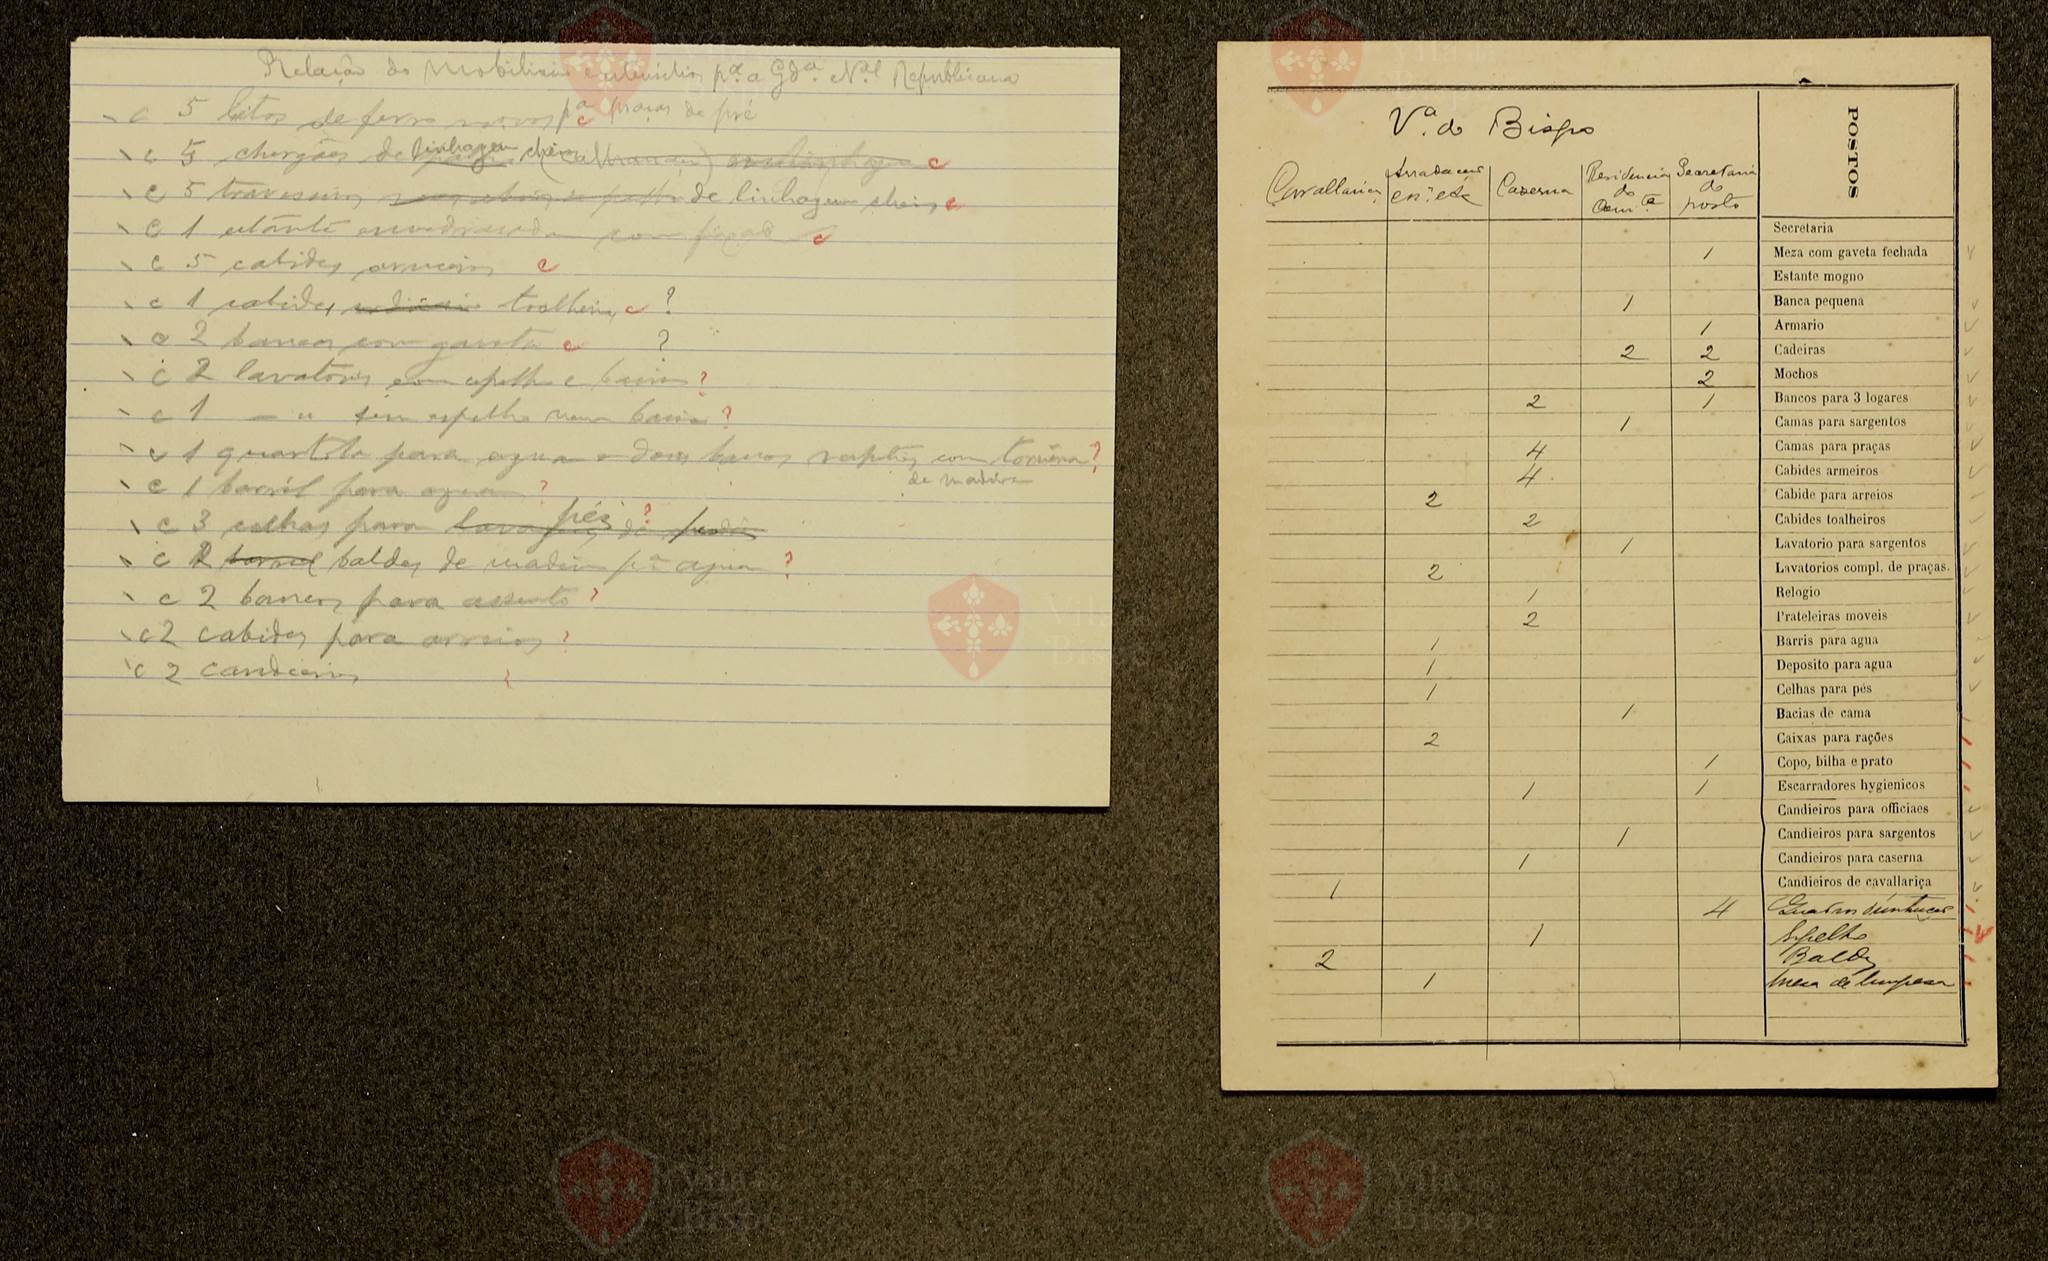 Relação do Mobiliario e utensilios pª a Gdª Nal Republicana
c 5 leitos de ferro novos pª praças de pré
c
c 5 chergões de linhagem cheios c
c 5 travesseiros de linhagem cheios c
c 1 estante c
c 5 cabides armeiros c
c 1 cabides toalheiros c ?
c 2 bancas com gaveta c ?
c 2 lavatorios com espelho e bacia ?
c 1 — " sem espelho nem bacia ?
c 1 quartola para agua e dois bancos com torneira ?
de madeira
c 1 barril para agua ?
c 3 celhas para pés ?
c 2 baldes de madeira pª agua ?
c 2 bancos para assento ?
c 2 cabides para arreios ?
c 2 candieiros
Vª do Bispo
POSTOS
Cavallariça
Arrecadação
Caserna
Residencia do Comte
Secretaria do posto
Secretaria
1 Meza com gaveta fechada
Estante mogno
1 Banca pequena
1 Armario
2 2 Cadeiras
2 Mochos
2 1 Bancos para 3 logares
1 Camas para sargentos
4 Camas para praças
4 Cabides armeiros
2 Cabide para arreios
2 Cabides toalheiros
1 Lavatorio para sargentos
2 Lavatorios compl. de praças.
1 Relogio
2 Prateleiras moveis
1 Barris para agua
1 Deposito para agua
1 Celhas para pés
1 Bacias de cama
2 Caixas para rações
1 Copo, bilha e prato
1 1 Escarradores hygienicos
Candieiros para officiaes
1 Candieiros para sargentos
1 Candieiros para caserna
1 Candieiros de cavallariça
4 Quadros
1 Espelho
2 Baldes
1 Mesa de limpesa
Vila do Bispo
Vila do Bispo
Vila do Bispo
Vila do Bispo
Vila do Bispo